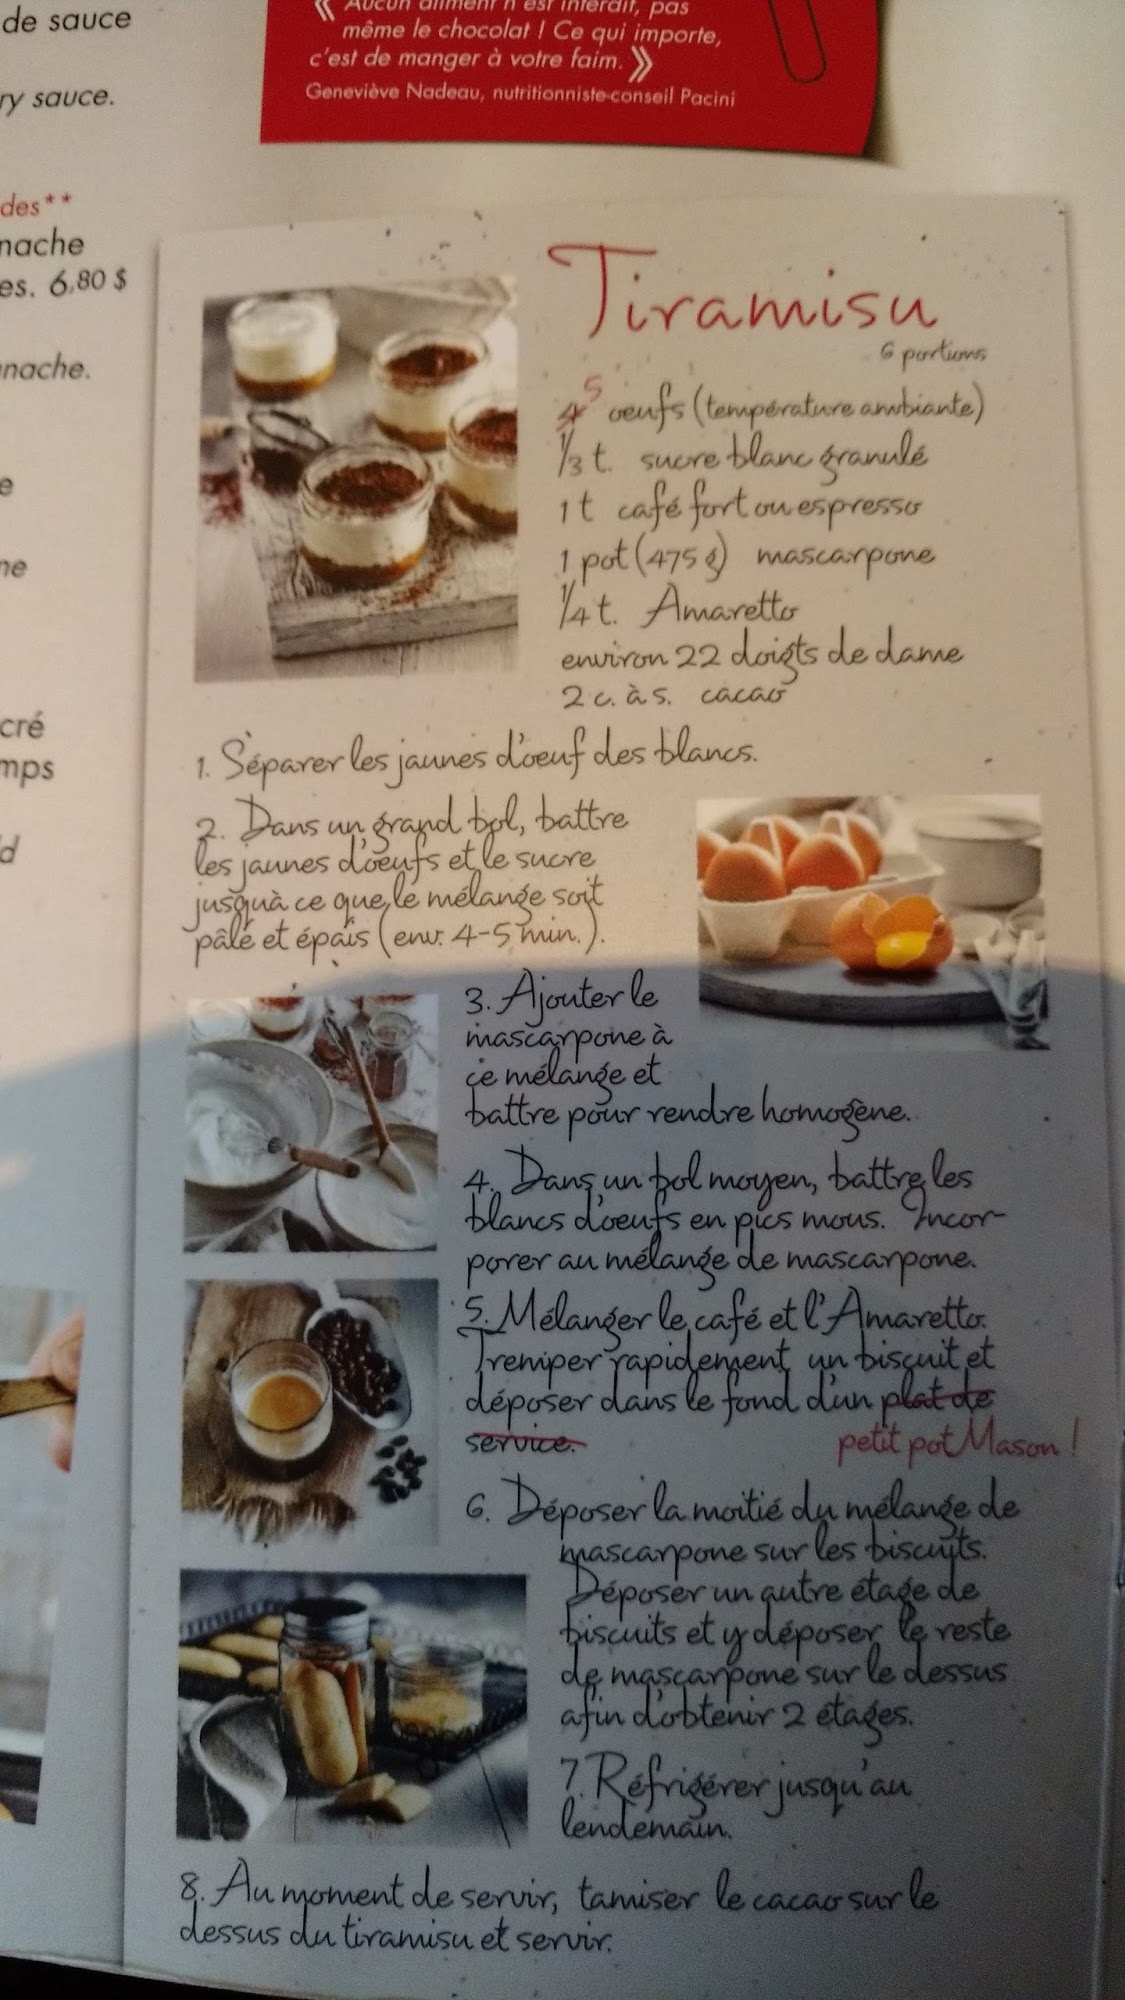 de sauce
ry sauce.
des**
nache
es. 6,80 $
nache.
e
ne
cré
mps
d
« Aucun aliment n'est interdit, pas
même le chocolat ! Ce qui importe,
c'est de manger à votre faim. »
Geneviève Nadeau, nutritionniste-conseil Pacini
Tiramisu
6 portions
4 5 oeufs (température ambiante)
1/3 t. sucre blanc granulé
1 t café fort ou espresso
1 pot (475 g) mascarpone
1/4 t. Amaretto
environ 22 doigts de dame
2 c. à s. cacao
1. Séparer les jaunes d'oeuf des blancs.
2. Dans un grand bol, battre
les jaunes d'oeufs et le sucre
jusqu'à ce que le mélange soit
pâle et épais (env. 4-5 min.).
3. Ajouter le
mascarpone à
ce mélange et
battre pour rendre homogène.
4. Dans un bol moyen, battre les
blancs d'oeufs en pics mous. Incor-
porer au mélange de mascarpone.
5. Mélanger le café et l'Amaretto.
Tremper rapidement un biscuit et
déposer dans le fond d'un plat de
service. petit pot Mason !
6. Déposer la moitié du mélange de
mascarpone sur les biscuits.
Déposer un autre étage de
biscuits et y déposer le reste
de mascarpone sur le dessus
afin d'obtenir 2 étages.
7. Réfrigérer jusqu'au
lendemain.
8. Au moment de servir, tamiser le cacao sur le
dessus du tiramisu et servir.